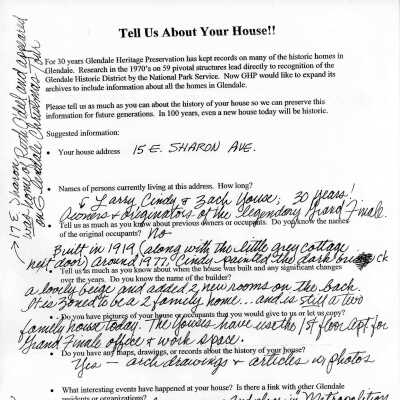 Tell Us About Your House!!
For 30 years Glendale Heritage Preservation has kept records on many of the historic homes in
Glendale. Research in the 1970's on 59 pivotal structures lead directly to recognition of the
Glendale Historic District by the National Park Service. Now GHP would like to expand its
archives to include information about all the homes in Glendale.
Please tell us as much as you can about the history of your house so we can preserve this
information for future generations. In 100 years, even a new house today will be historic.
Suggested information:
• Your house address 15 E. SHARON AVE.
• Names of persons currently living at this address. How long?
& Larry, Cindy & Zach Youse; 30 years!
Owners & originators of the legendary Grand Finale
• Tell us as much as you know about previous owners or occupants. Do you know the names
of the original occupants? No
Built in 1919 (along with the little grey cottage
next door) around 1977. Cindy painted the dark brick
• Tell us as much as you know about when the house was built and any significant changes
over the years. Do you know the name of the builder?
a lovely beige and added 2 new rooms on the back.
It is zoned to be a 2 family home... and is still a two
• Do you have pictures of your house or occupants that you would give to us or let us copy?
family house today. The Youses have use the 1st floor apt for
Grand Finale office & work space.
• Do you have any maps, drawings, or records about the history of your house?
Yes – arch drawings & articles w photos
• What interesting events have happened at your house? Is there a link with other Glendale
residents or organizations? in "Metropolitan
17 E. Sharon
was home of and appeared
on Glendale Christmas Tour